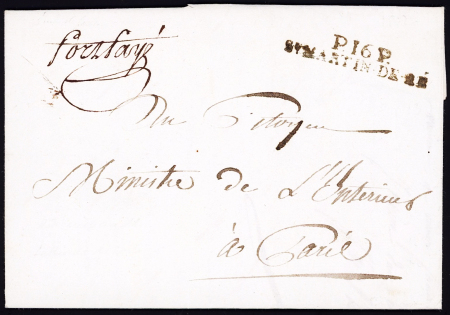 Port payé
P.16.P.
St MARTIN-DE-RÉ
Au Citoyen
Ministre de L'Interieur
à Paris